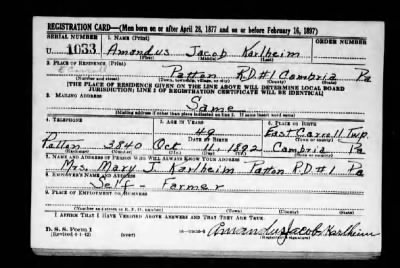 REGISTRATION CARD—(Men born on or after April 28, 1877 and on or before February 16, 1897)
SERIAL NUMBER 1. NAME (Print) ORDER NUMBER
U 1053 Amandus Jacob Karlheim
(First) (Middle) (Last)
2. PLACE OF RESIDENCE (Print)
E Carroll Patton R.D.#1 Cambria Pa
(Number and street) (Town, township, village, or city) (County) (State)
[THE PLACE OF RESIDENCE GIVEN ON THE LINE ABOVE WILL DETERMINE LOCAL BOARD
JURISDICTION; LINE 2 OF REGISTRATION CERTIFICATE WILL BE IDENTICAL]
3. MAILING ADDRESS
Same
[Mailing address if other than place indicated on line 2. If same insert word same]
4. TELEPHONE 5. AGE IN YEARS 6. PLACE OF BIRTH
49 East Carroll Twp.
DATE OF BIRTH (Town or county)
Patton 3840 Oct 11 1892 Cambria Pa
7. NAME AND ADDRESS OF PERSON WHO WILL ALWAYS KNOW YOUR ADDRESS
Mrs. Mary J. Karlheim Patton R.D.#1 Pa
8. EMPLOYER'S NAME AND ADDRESS
Self - Farmer
9. PLACE OF EMPLOYMENT OR BUSINESS
(Number and street or R. F. D. number) (Town) (County) (State)
I AFFIRM THAT I HAVE VERIFIED ABOVE ANSWERS AND THAT THEY ARE TRUE.
D. S. S. Form 1
(Revised 4-1-42) (over) Amandus Jacob Karlheim
(Registrant's signature)